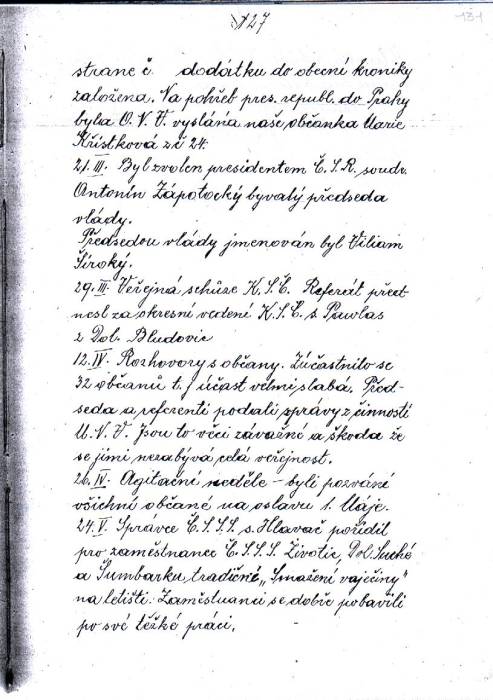 127
131
strane č. dodátku do obecní kroniky
založena. Na pohřeb pres. republ. do Prahy
byla O.N.V. vyslána naše občanka Marie
Křístková z č 24.
21. III. Byl zvolen presidentem Č.S.R. soudr.
Antonín Zápotocký bývalý předseda
vlády.
Předsedou vlády jmenován byl Viliam
Široký.
29. III. Veřejná schůze K.S.Č. Referát před-
nesl za okresní vedení K.S.Č. s. Pawlas
z Dol. Bludovic
12. IV. Rozhovory s občany. Zúčastnilo se
32 občanů t. j účast velmi slabá. Před-
seda a referenti podali správy z činnosti
M.N.V. Jsou to věci závažné a škoda že
se jimi nezabývá celá veřejnost.
26. IV. Agitační neděle – byli pozváni
všichni občané na oslavu 1. Máje.
24. V. Správce Č.S.S.S s. Hlavač pořídil
pro zaměstnance Č.S.S.S Životic, Dol. Suché
a Šumbarku tradičné „Smažení vajíčiny"
na letišti. Zaměstnanci se dobře pobavili
po své těžké práci.